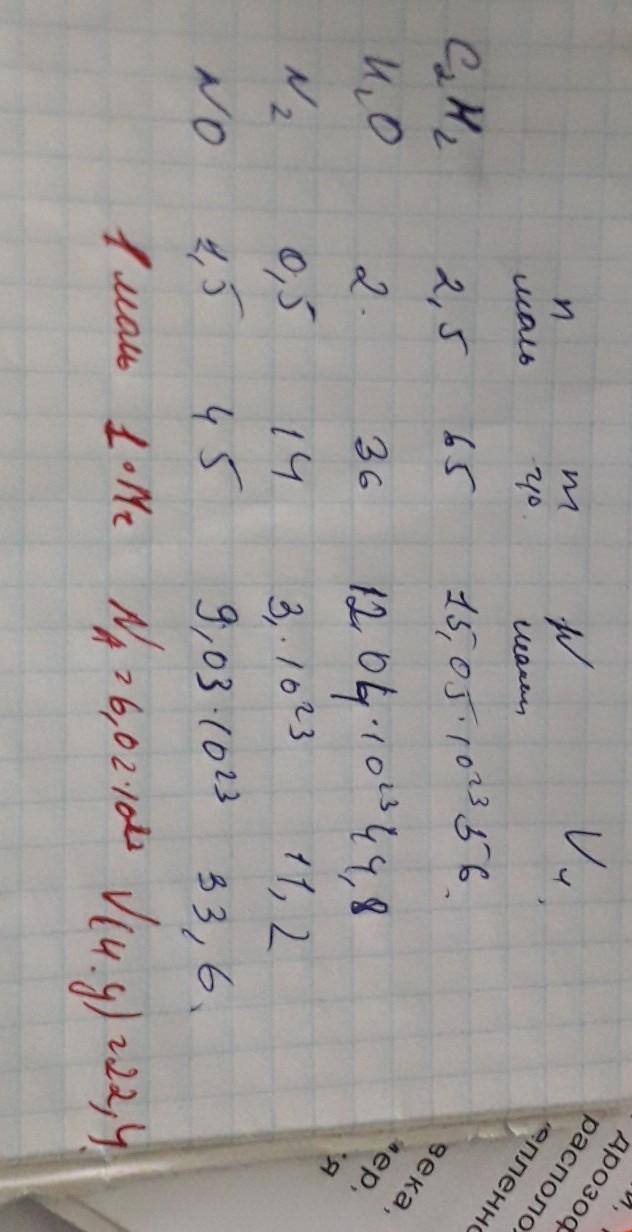 n m N V ч.
моль гр. молец
C₂H₂ 2,5 65 15,05·10²³ 56.
H₂O 2. 36 12,04·10²³ 44,8
N₂ 0,5 14 3,·10²³ 11,2
NO 1,5 45 9,03·10²³ 33,6.
1 моль 1·Mr N_A=6,02·10²³ V(н.у)=22,4.
дрозоф
располо
епленн
века,
чер,
я